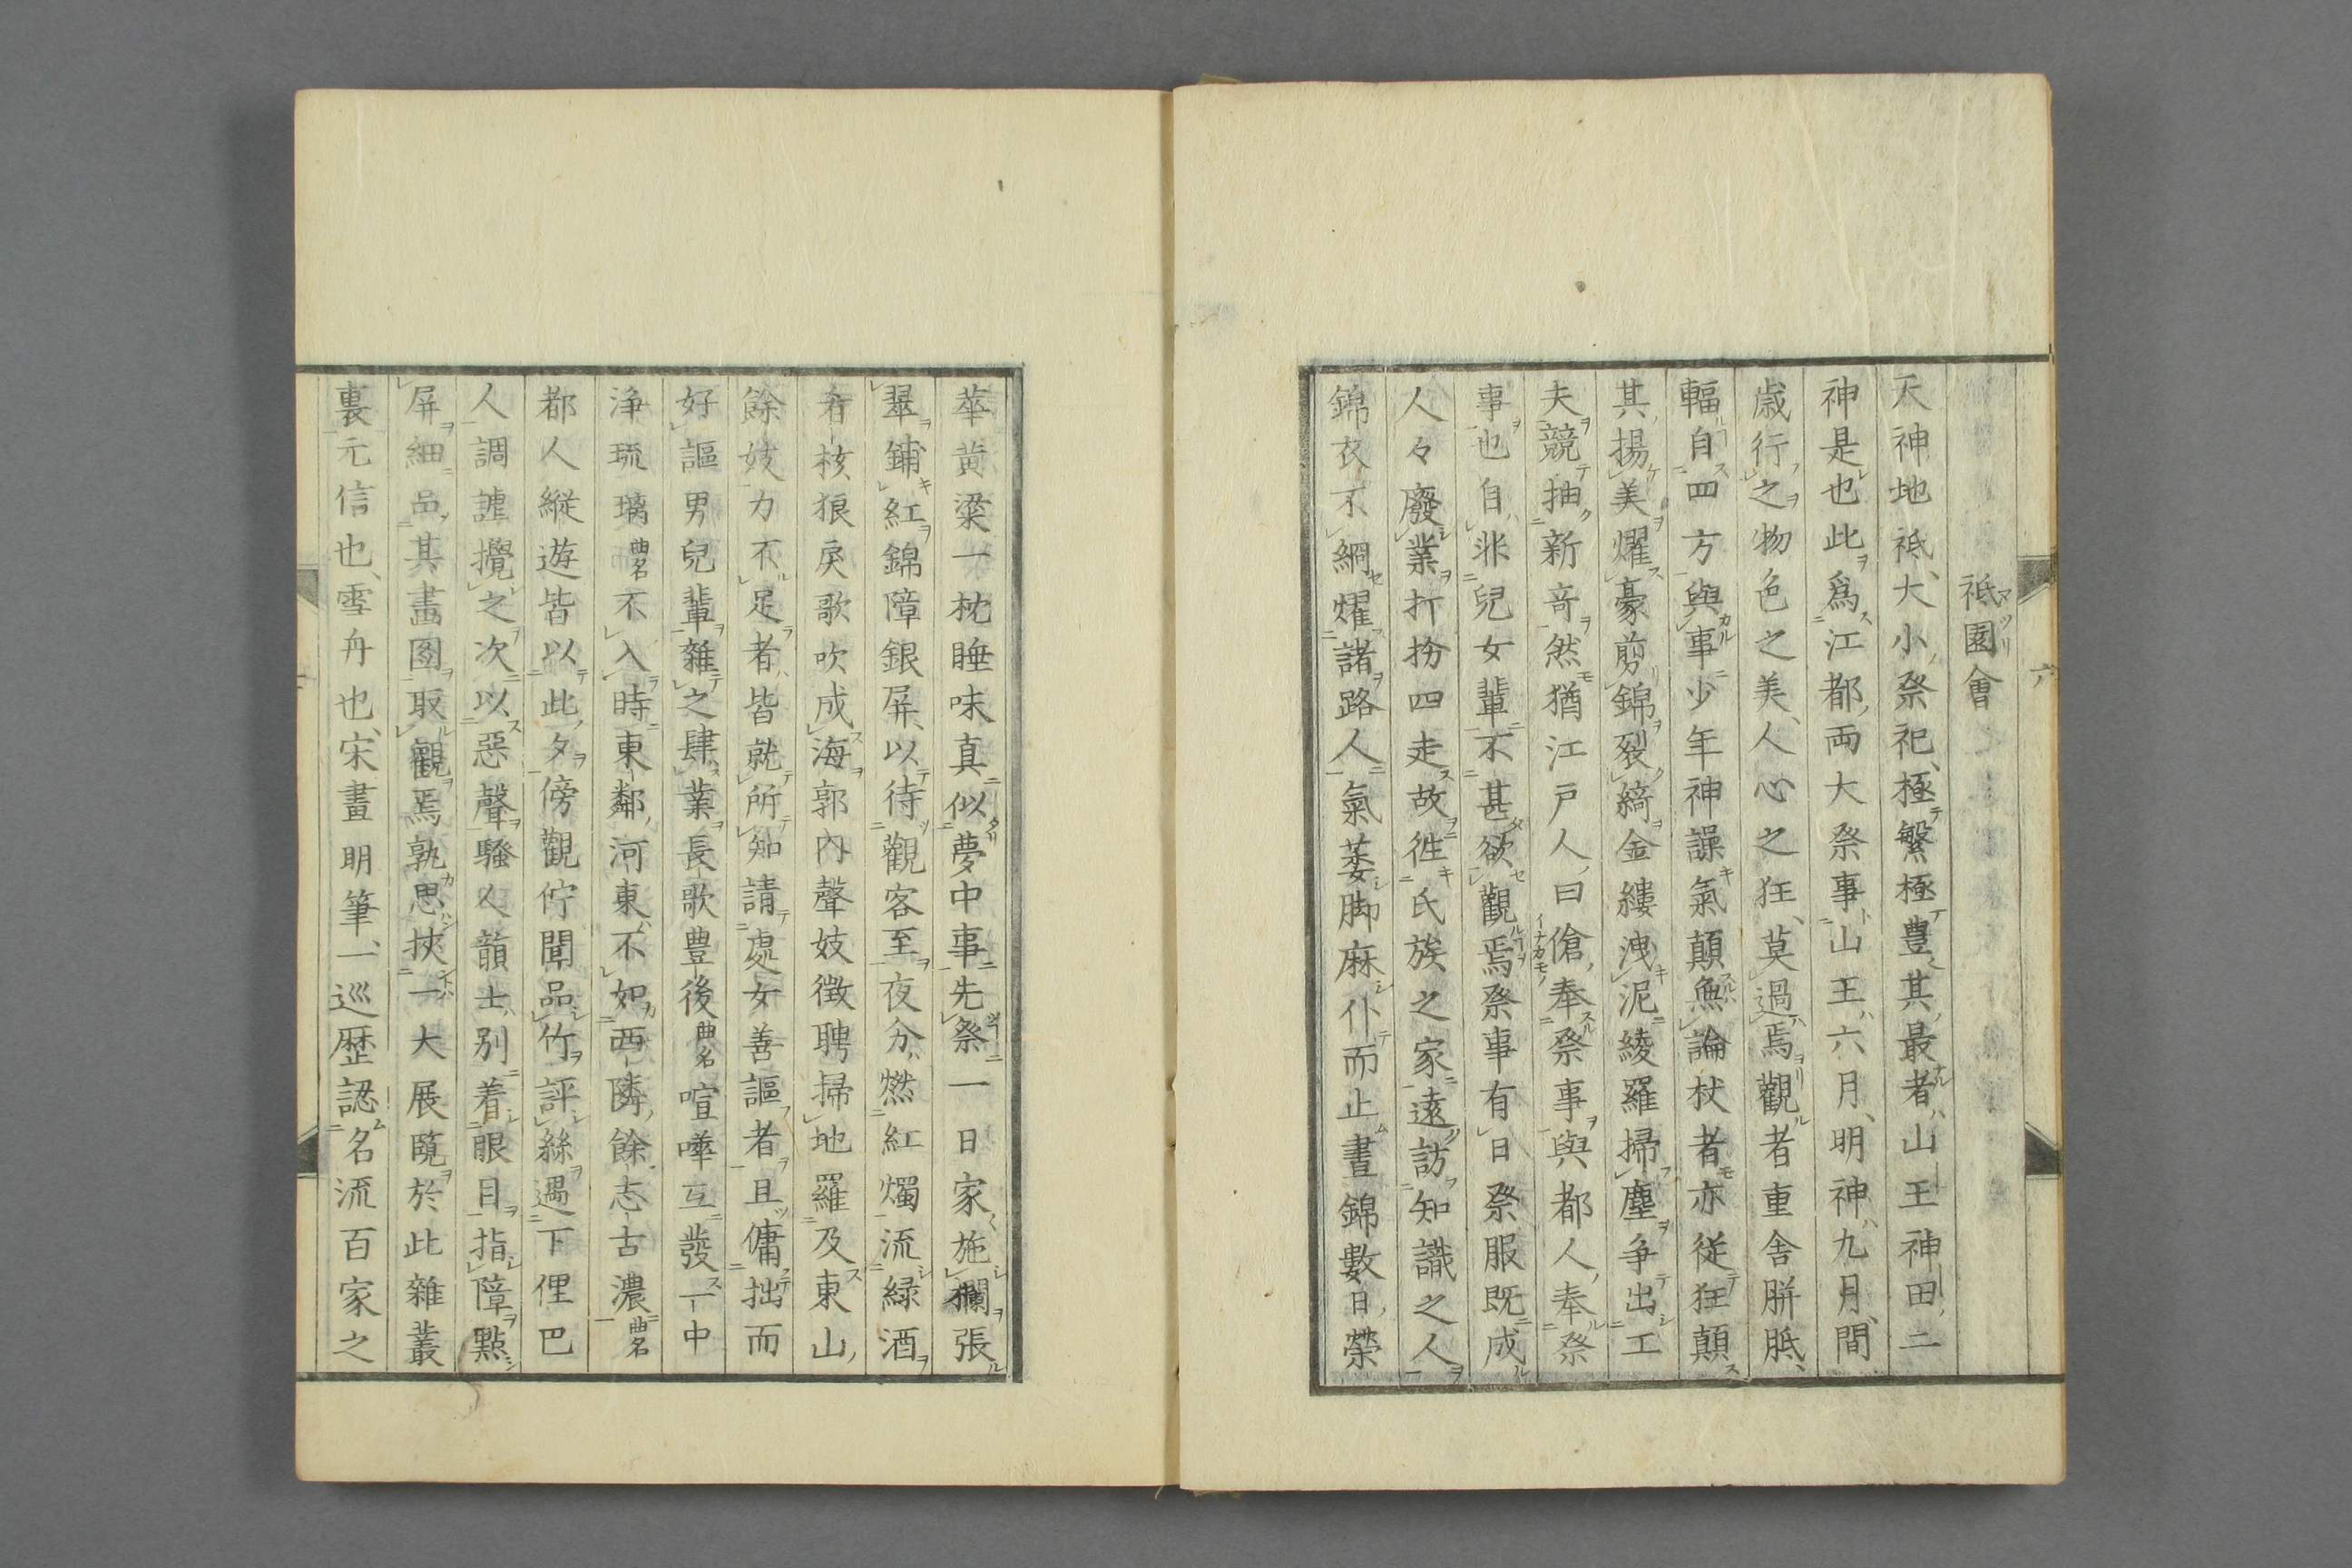 六
祗園會
天神地祗、大小祭祀、極繁極豊其最者山王神田二
神是也此爲江都両大祭事山王六月、明神九月、間
歳行之物色之美、人心之狂、莫過焉觀者重舎胼胝、
輻自四方與事少年神譟氣顛無論杖者亦從狂顛
其揚美燿豪剪錦裂綺金縷洩泥綾羅掃塵争出工
夫競抽新奇然猶江戸人曰傖奉祭事與都人奉祭
事也自非兒女輩不甚欲觀焉祭事有日祭服既成
人々廢業打扮四走故徃氏族之家遠訪知識之人
錦衣不絅燿諸路人氣萎脚麻仆而止晝錦數日榮
華黄粱一枕睡味真似夢中事先祭一日家施欄張
翠鋪紅錦障銀屏、以待觀客至夜分燃紅燭流緑酒
肴核狼戻歌吹成海郭内聲妓徴聘掃地羅及東山
餘妓力不足者皆就所知請處女善謳者且傭拙而
好謳男兒輩雜之肆業長歌豊後曲名喧嘩互發一中
浄琉璃曲名不入時東鄰河東不如西隣餘志古濃曲名
都人縦遊皆以此夕傍觀佇聞品竹評絲遇下俚巴
人調謔攪之次以惡聲騷人韻士別着眼目指障點
屏細品其畫图取觀焉孰思挾一大展覧於此雜叢
裏元信也、雪舟也、宋畫明筆、一巡歴認名流百家之